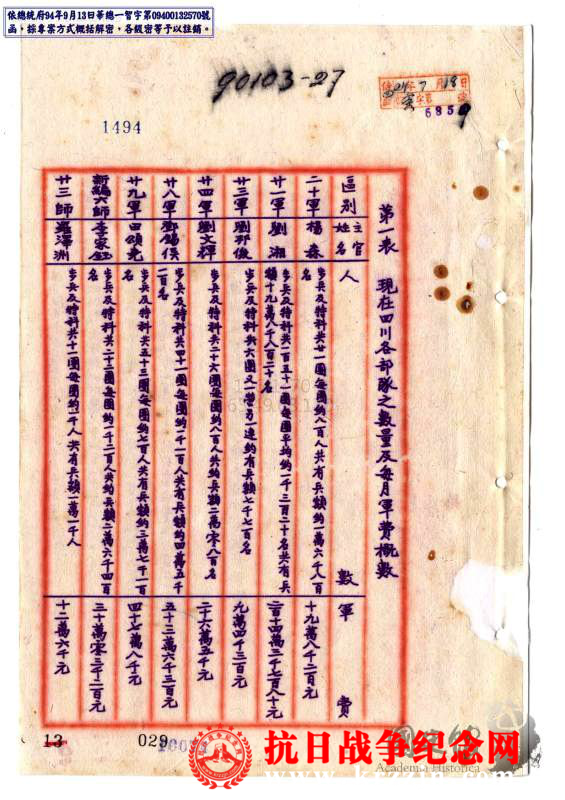 依總統府94年9月13日華總一智字第09400132570號
函，採專案方式概括解密，各級密等予以註銷。
90103-27
年7月18日
6859
1494
第一表　現在四川各部隊之數量及每月軍費概數
區別　主官姓名　人數　軍費
二十軍　楊森　步兵及特科共廿一團每團約八百人共有兵額約一萬六千八百名　十九萬八千二百元
廿一軍　劉湘　步兵及特科共一百五十一團每團平均約一千三百二十名共有兵額十九萬八千八百二十名　二百十四萬三千七百八十元
廿三軍　劉邦俊　步兵及特科共六團又一營另一連約有兵額七千七百名　九萬四千三百元
廿四軍　劉文輝　步兵及特科共二十六團每團約八百人共約兵額二萬零八百名　二十六萬五千元
廿八軍　鄧錫侯　步兵及特科共四十一團每團約一千一百人共有兵額約四萬五千一百名　五十二萬六千三百元
廿九軍　田頌堯　步兵及特科共五十三團每團約七百人共有兵額約三萬七千一百名　四十七萬八千元
新編六師　李家鈺　步兵及特科共二十二團每團約一千二百人共約兵額二萬六千四百名　三十萬零三千二百元
廿三師　羅澤洲　步兵及特科共十一團每團約一千人共有兵額一萬一千人　十二萬六千元
13
029
抗日战争纪念网
Academia Historica